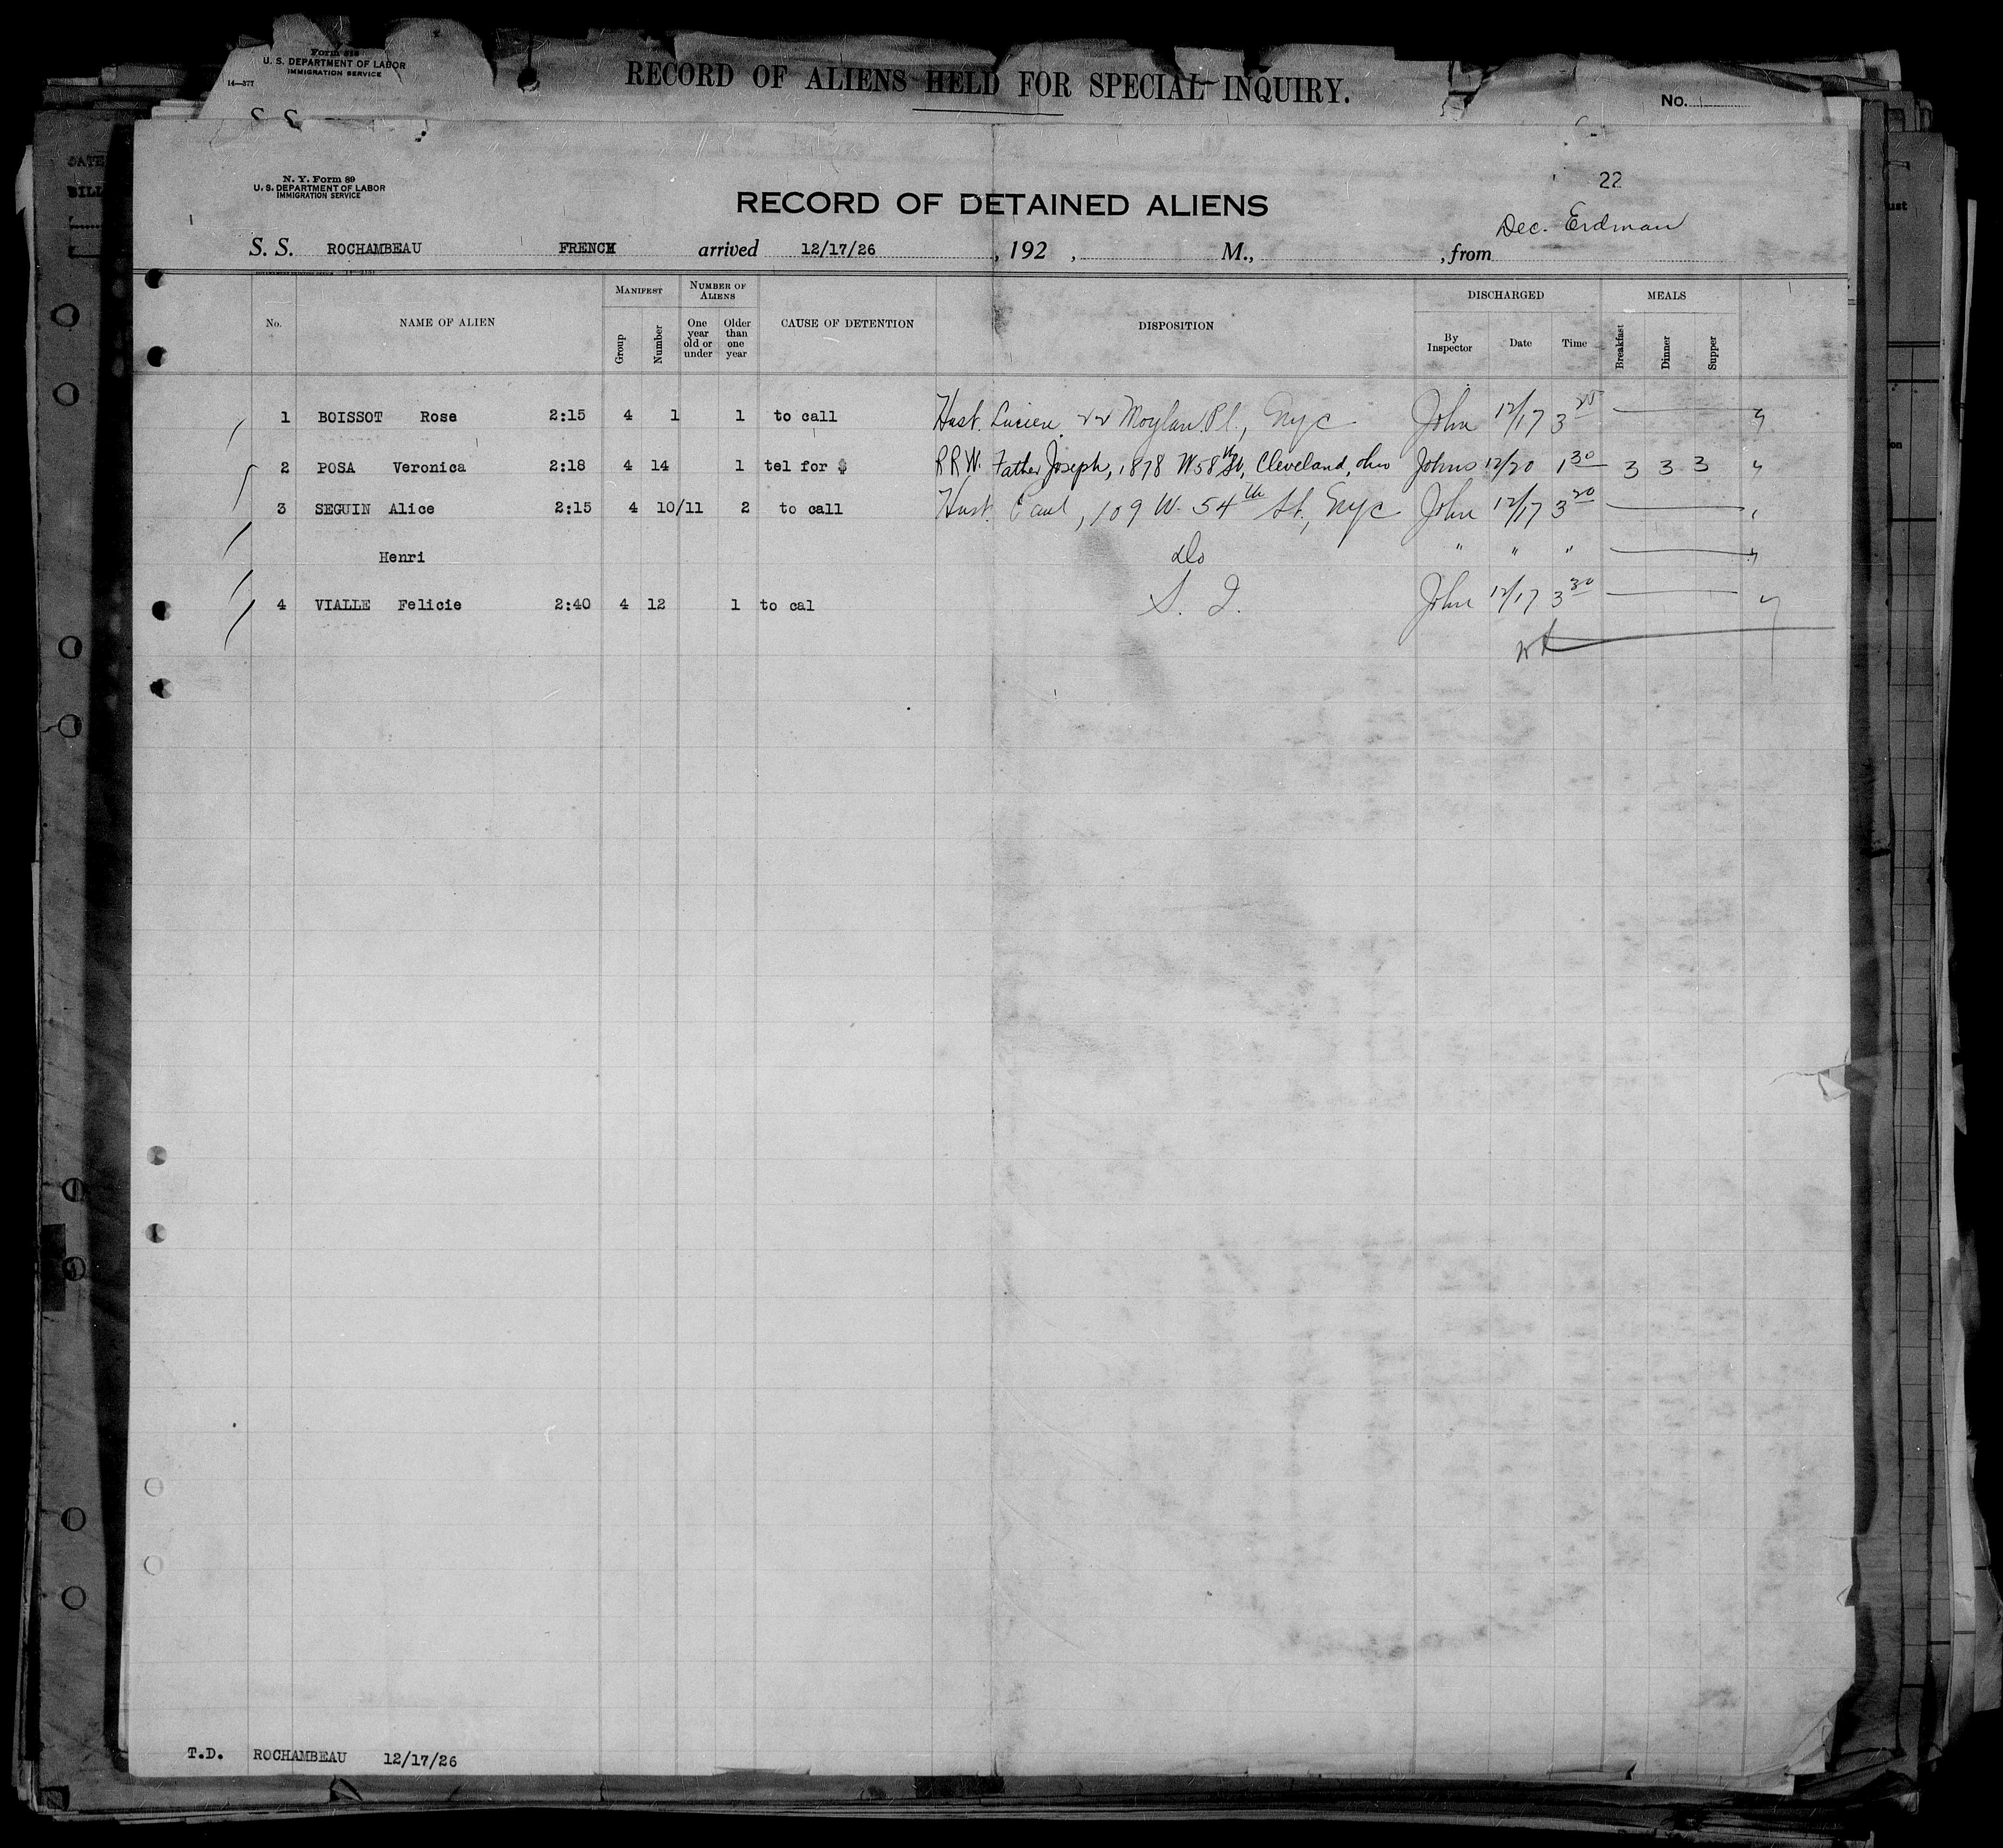 Form 518
U. S. DEPARTMENT OF LABOR
IMMIGRATION SERVICE
14—377
RECORD OF ALIENS HELD FOR SPECIAL INQUIRY.
No.
S. S.
N. Y. Form 89
U. S. DEPARTMENT OF LABOR
IMMIGRATION SERVICE
22
RECORD OF DETAINED ALIENS
Dec. Erdman
S. S. ROCHAMBEAU FRENCH arrived 12/17/26 , 192 , M., , from
MANIFEST NUMBER OF ALIENS DISCHARGED MEALS
No. NAME OF ALIEN Group Number One year old or under Older than one year CAUSE OF DETENTION DISPOSITION By Inspector Date Time Breakfast Dinner Supper
1 BOISSOT Rose 2:15 4 1 1 to call Husb. Lucien 22 Moylan Pl., Nyc John 12/17 3
2 POSA Veronica 2:18 4 14 1 tel for $ RRW. Father Joseph, 1878 W 58th St, Cleveland, Ohio Johns 12/20 1 30 3 3 3
3 SEGUIN Alice 2:15 4 10/11 2 to call Husb. Paul, 109 W. 54th St., Nyc John 12/17 3 20
Henri do " " "
4 VIALLE Felicie 2:40 4 12 1 to cal S. I. John 12/17 3 30
T.D. ROCHAMBEAU 12/17/26